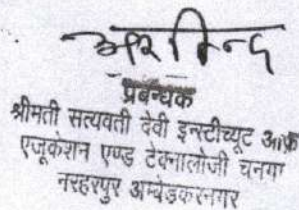 अरविन्द
प्रबन्धक
श्रीमती सत्यवती देवी इन्स्टीच्यूट आफ
एजूकेशन एण्ड टेक्नालोजी चनगा
नरहरपुर अम्बेडकरनगर